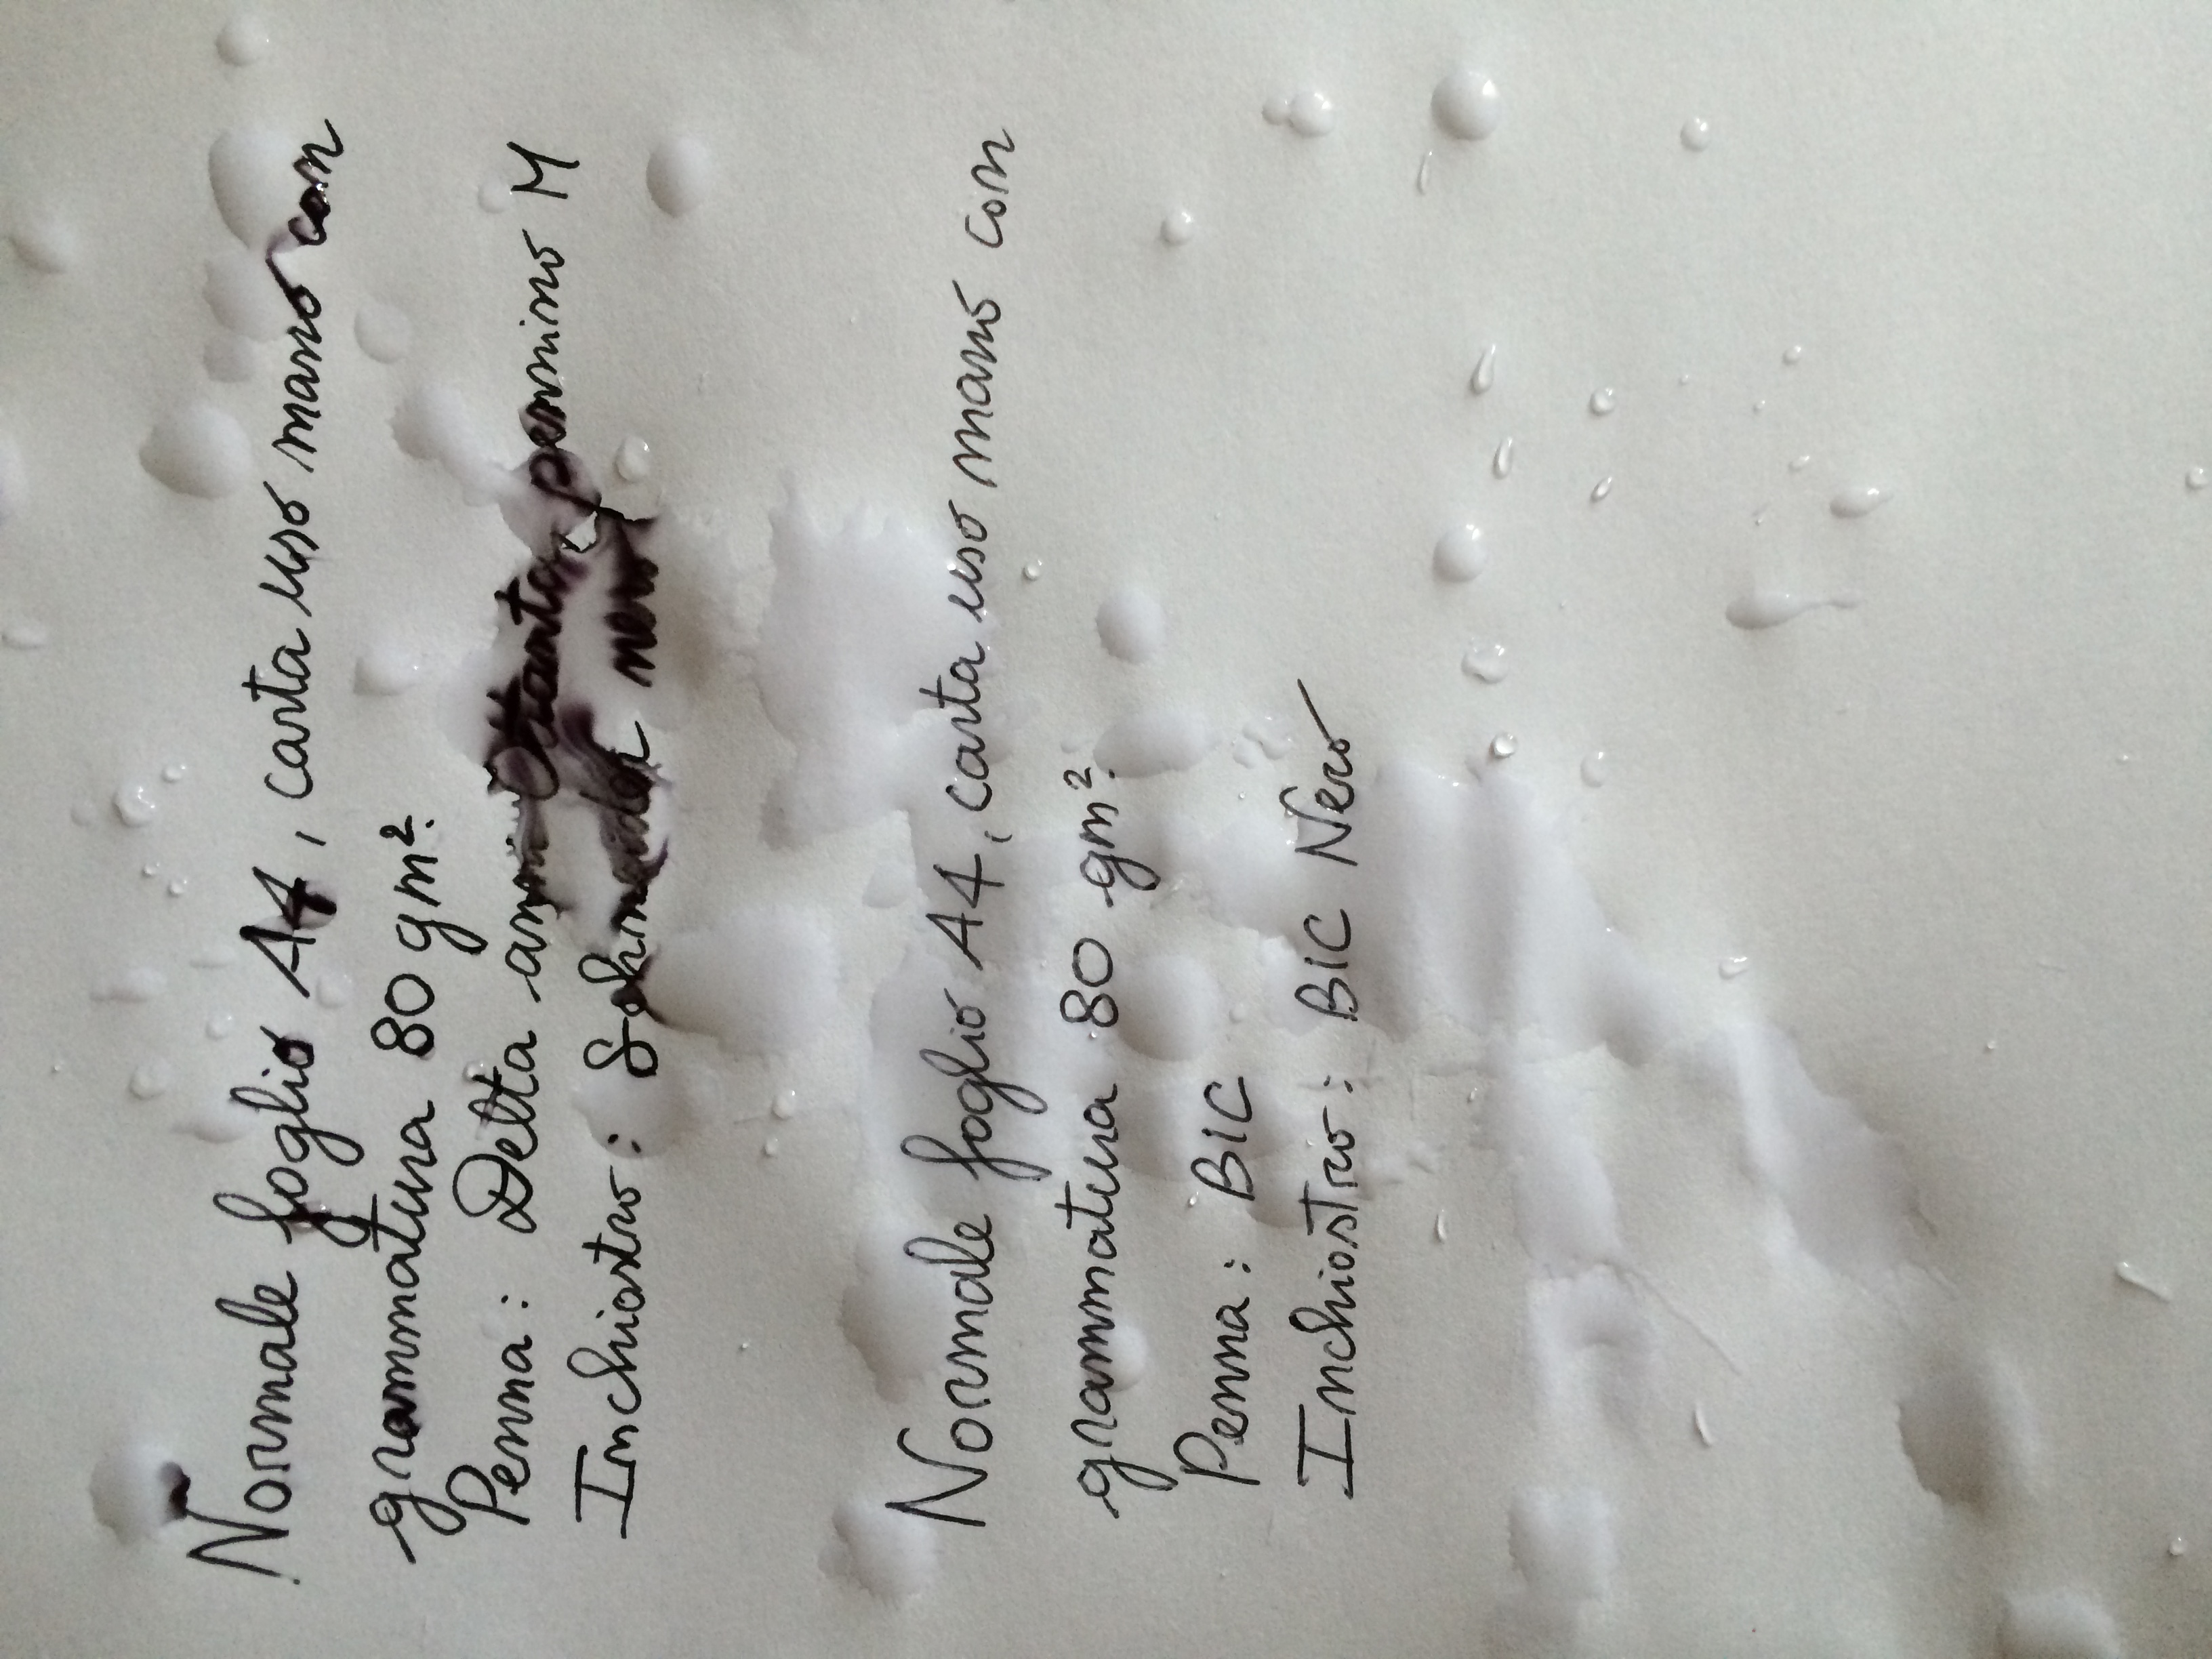 Normale foglio A4, carta uso mano con
grammatura 80 gm².
Penna: Delta anni Ottanta, pennino M
Inchiostro: Schneider nero
Normale foglio A4, carta uso mano con
grammatura 80 gm².
Penna: BIC
Inchiostro: BIC Nero